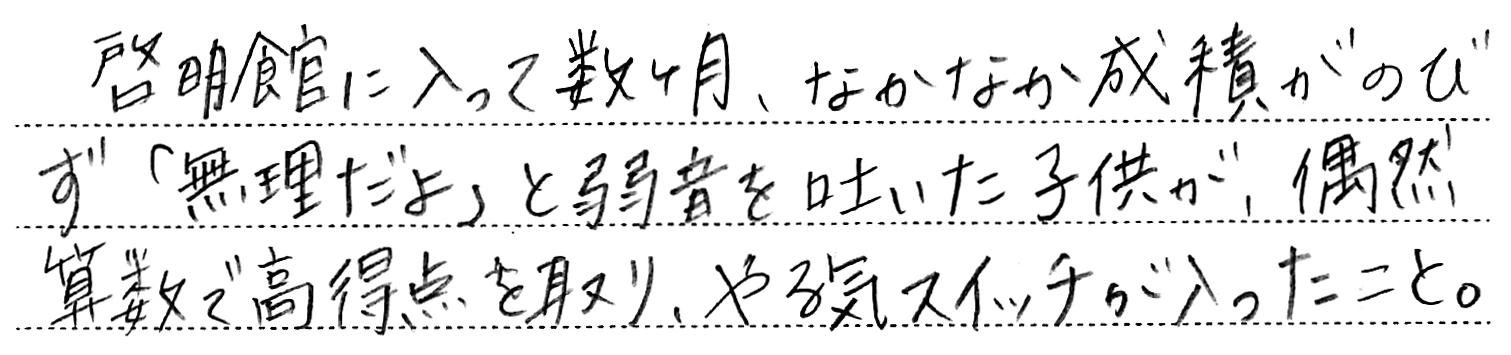 啓明館に入って数ヶ月、なかなか成積がのび
ず「無理だよ」と弱音を吐いた子供が、偶然
算数で高得点を取り、やる気スイッチが入ったこと。